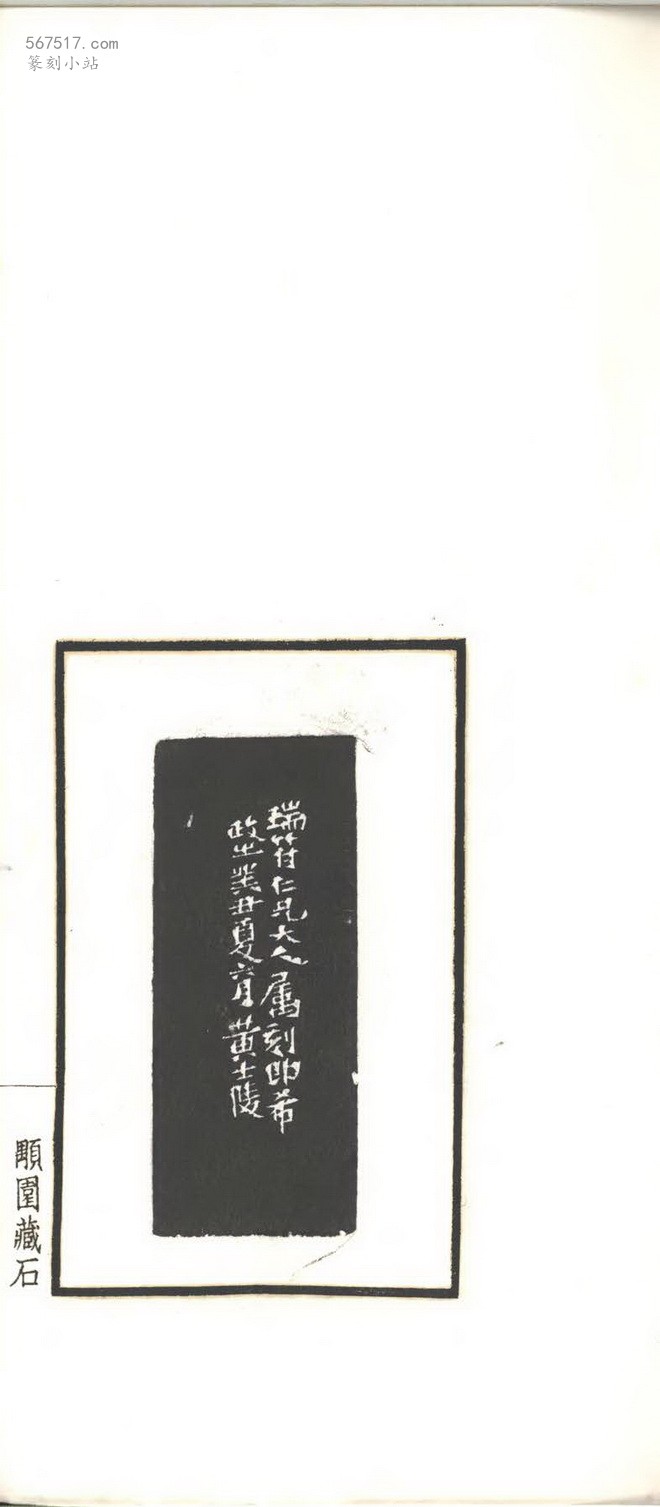 567517.com
篆刻小站
瑞符仁兄大人属刻即希
政之癸丑夏六月黄士陵
顒園藏石